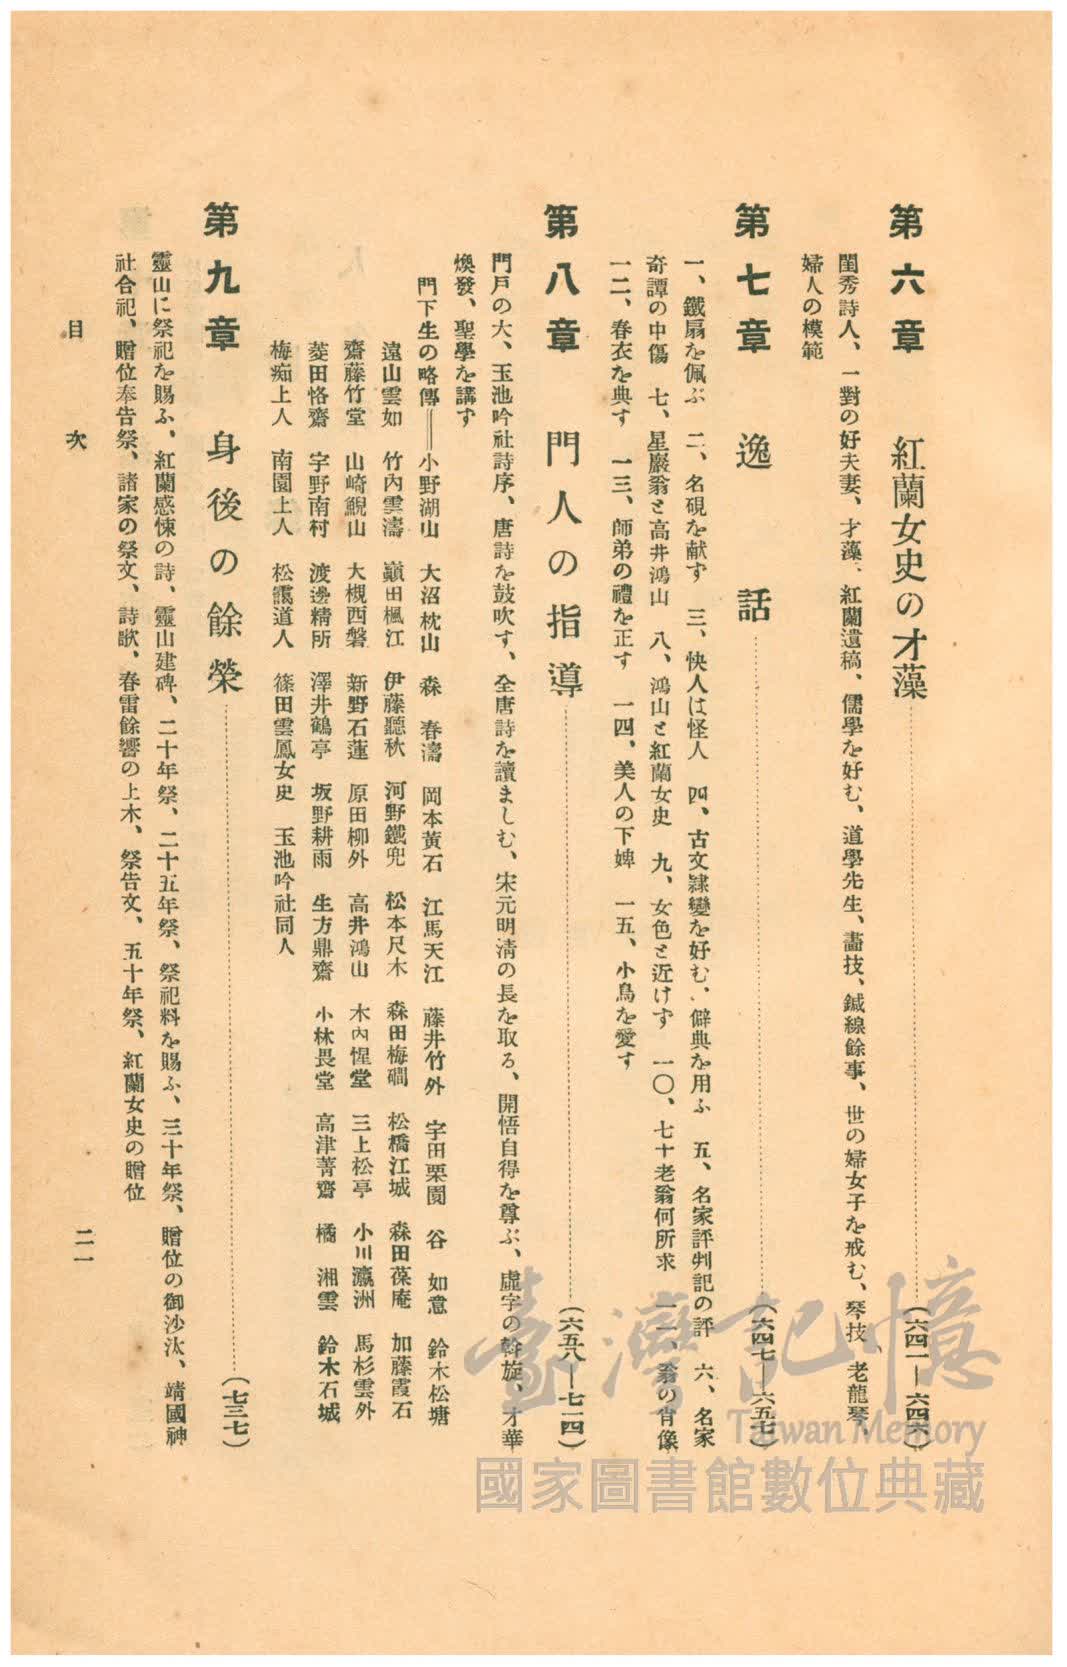 第六章　紅蘭女史の才藻……（六四一―六四六）
閨秀詩人、一對の好夫妻、才藻、紅蘭遺稿、儒學を好む、道學先生、畵技、鍼線餘事、世の婦女子を戒む、琴技、老龍琴、
婦人の模範
第七章　逸話……（六四七―六五七）
一、鐵扇を佩ぶ　二、名硯を献す　三、快人は怪人　四、古文隷變を好む、僻典を用ふ　五、名家評判記の評　六、名家
奇譚の中傷　七、星巖翁と高井鴻山　八、鴻山と紅蘭女史　九、女色と近けず　一〇、七十老翁何所求　一一、翁の肖像
一二、春衣を典す　一三、師弟の禮を正す　一四、美人の下婢　一五、小鳥を愛す
第八章　門人の指導……（六五八―七一四）
門戸の大、玉池吟社詩序、唐詩を鼓吹す、全唐詩を讀ましむ、宋元明淸の長を取る、開悟自得を尊ぶ、虛字の斡旋、才華
煥發、聖學を講す
門下生の略傳――小野湖山　大沼枕山　森春濤　岡本黃石　江馬天江　藤井竹外　宇田栗園　谷如意　鈴木松塘
遠山雲如　竹內雲濤　巓田楓江　伊藤聽秋　河野鐵兜　松本尺木　森田梅礀　松橋江城　森田葆庵　加藤霞石
齋藤竹堂　山崎鯢山　大槻西磐　新野石蓮　原田柳外　高井鴻山　木內惺堂　三上松亭　小川瀛洲　馬杉雲外
菱田恪齋　宇野南村　渡邊精所　澤井鶴亭　坂野耕雨　生方鼎齋　小林畏堂　高津菁齋　橘湘雲　鈴木石城
梅痴上人　南園上人　松靄道人　篠田雲鳳女史　玉池吟社同人
第九章　身後の餘榮……（七三七）
靈山に祭祀を賜ふ、紅蘭感悚の詩、靈山建碑、二十年祭、二十五年祭、祭祀料を賜ふ、三十年祭、贈位の御沙汰、靖國神
社合祀、贈位奉告祭、諸家の祭文、詩歌、春雷餘響の上木、祭告文、五十年祭、紅蘭女史の贈位
目次　二一
臺灣記憶
Taiwan Memory
國家圖書館數位典藏